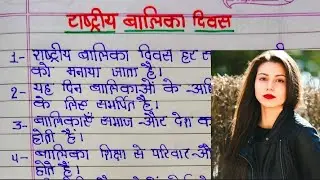 राष्ट्रीय बालिका दिवस
1- राष्ट्रीय बालिका दिवस हर
को मनाया जाता है।
2- यह दिन बालिकाओं के
के लिए समर्पित है।
3- बालिकाएँ समाज और देश
होती हैं।
4- बालिका शिक्षा से परिवार
होते हैं।